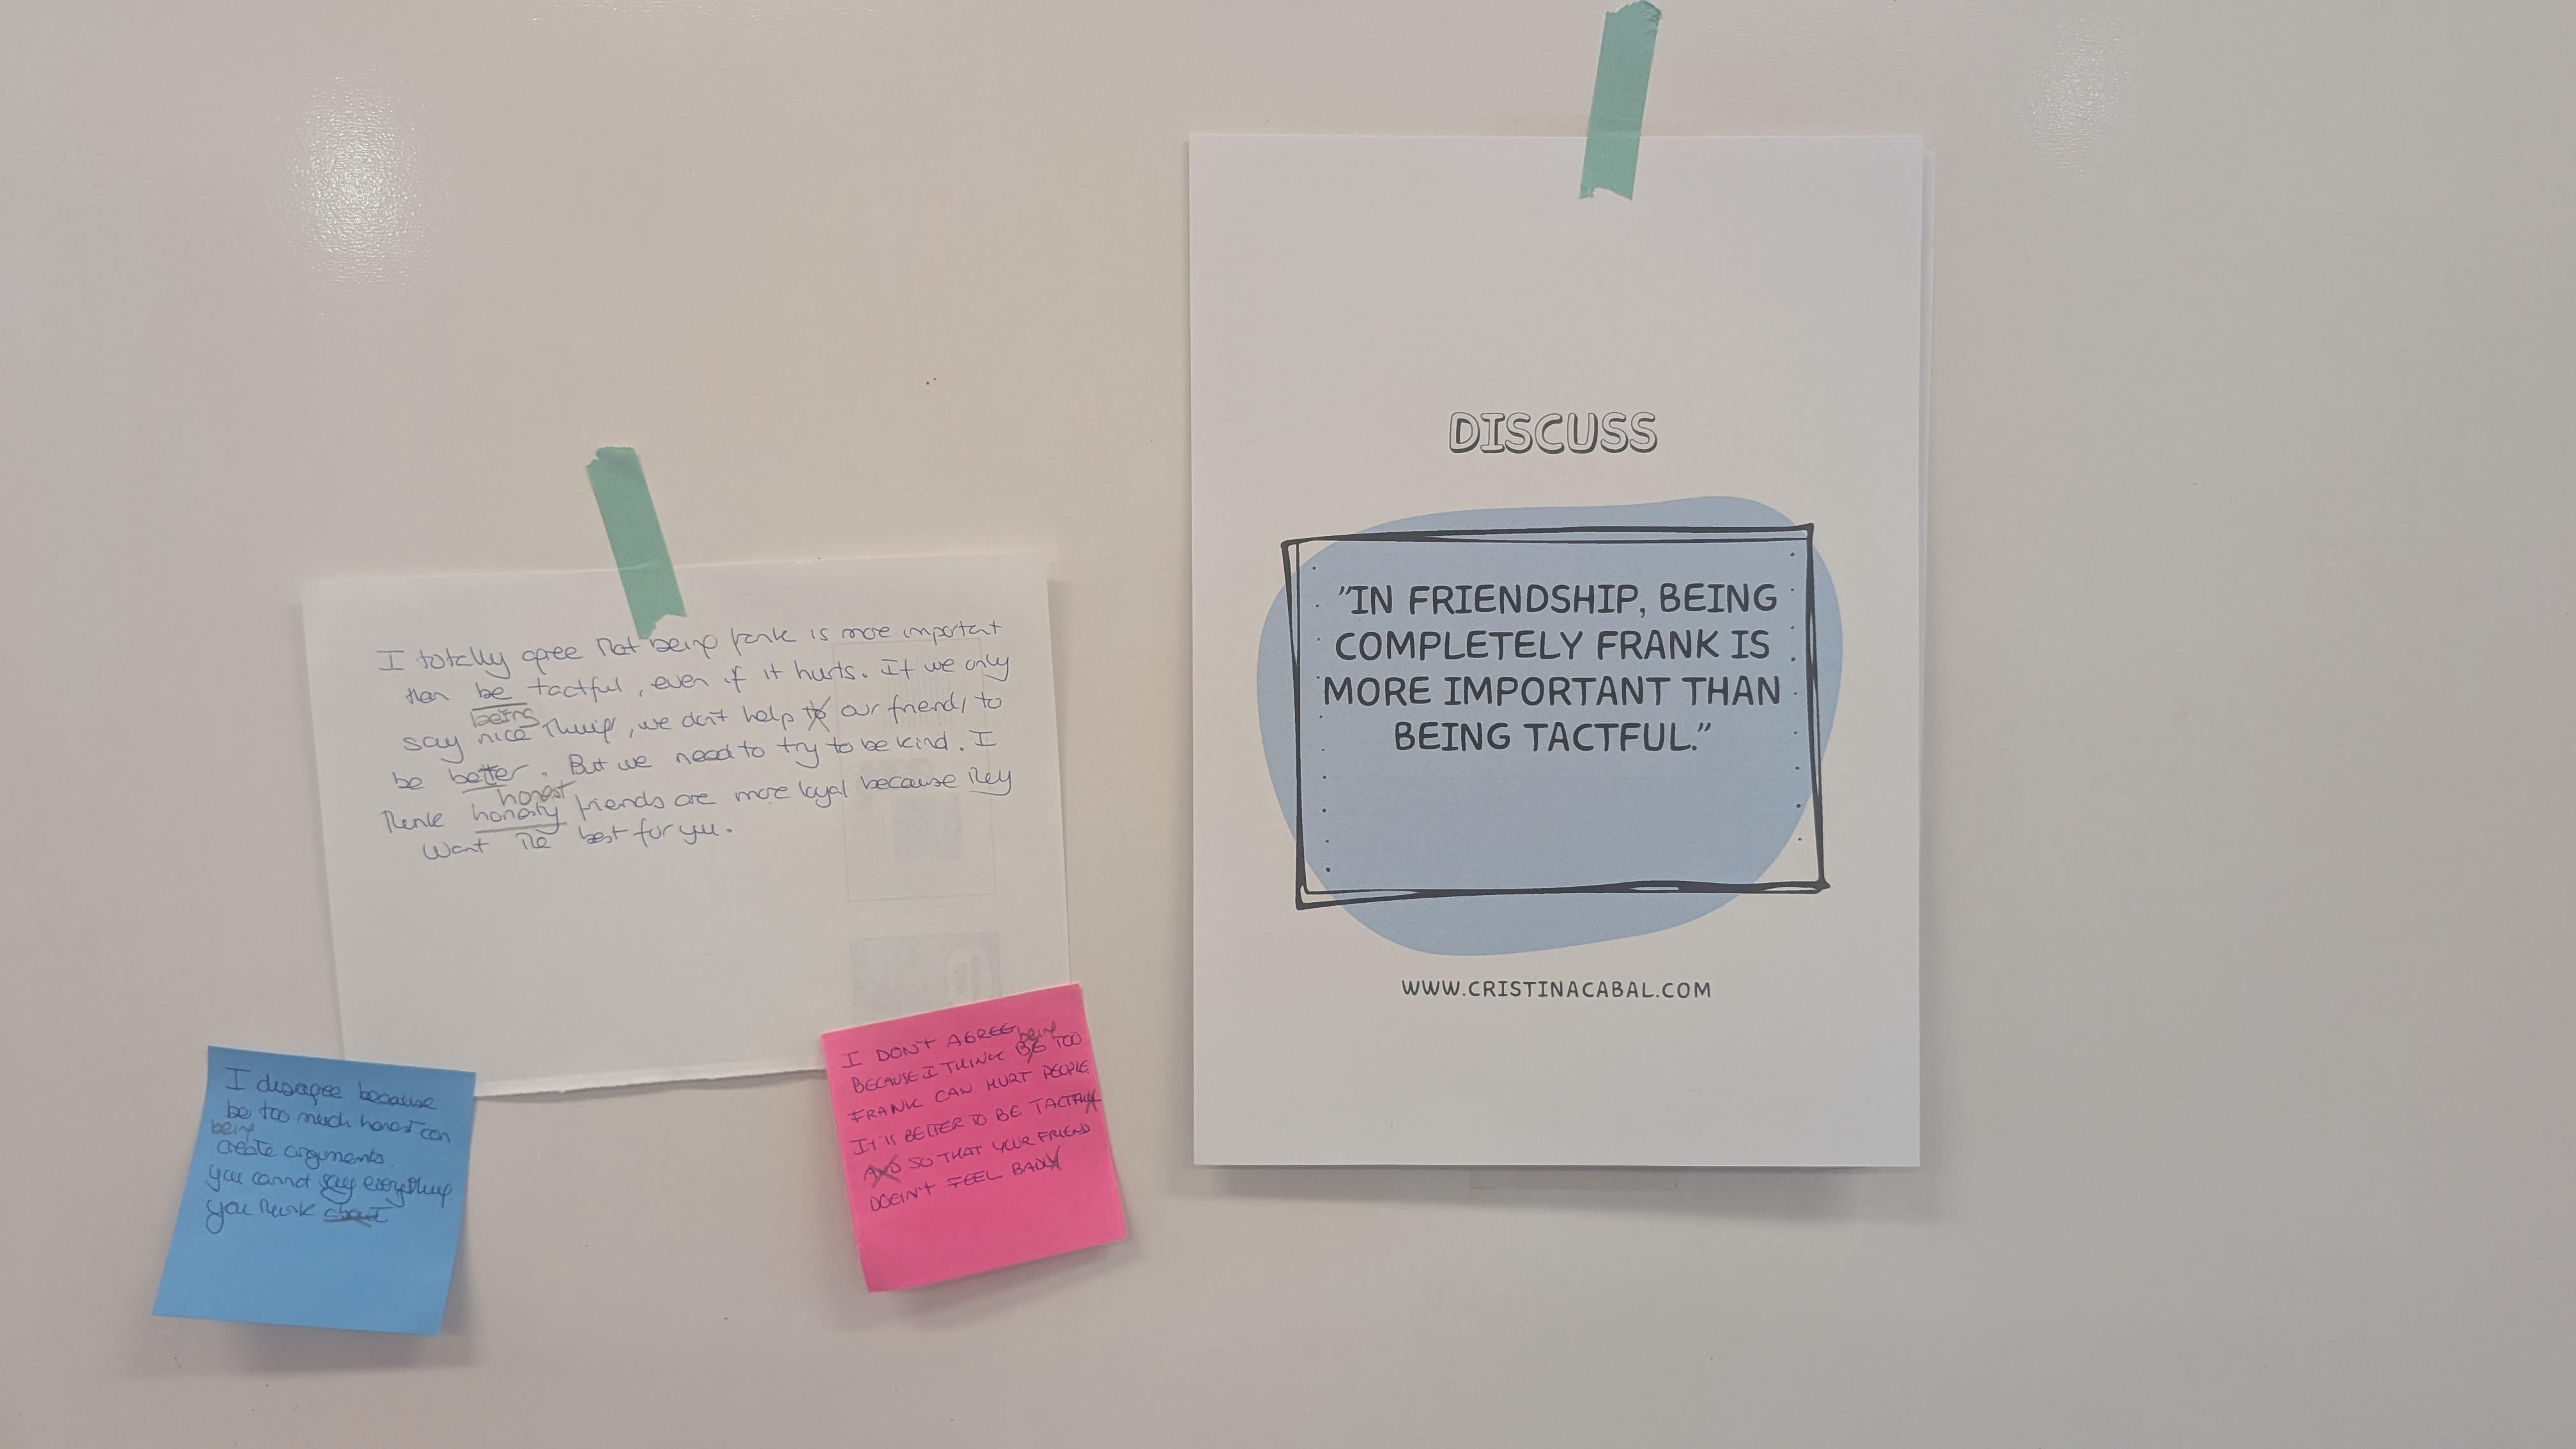 I totally agree that being frank is more important
than be tactful, even if it hurts. If we only
being
say nice things, we don't help to our friends to
be better. But we need to try to be kind. I
honest
think honesty friends are more loyal because they
want the best for you.
I disagree because
be too much honest can
being
create arguments.
you cannot say everything
you think about
I DON'T AGREE
being
BECAUSE I THINK BE TOO
FRANK CAN HURT PEOPLE
IT IS BETTER TO BE TACTFUL
AND SO THAT YOUR FRIEND
DOEIN'T FEEL BADLY
DISCUSS
"IN FRIENDSHIP, BEING
COMPLETELY FRANK IS
MORE IMPORTANT THAN
BEING TACTFUL."
WWW.CRISTINACABAL.COM